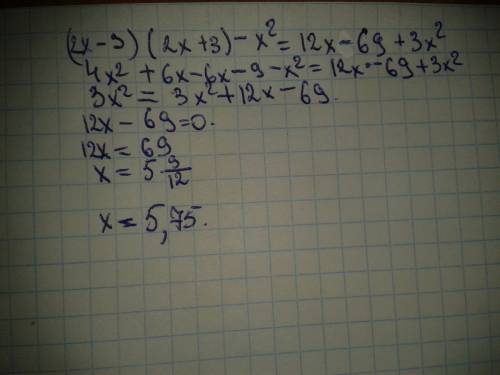 (2x-3)(2x+3)-x²=12x-69+3x²
4x²+6x-6x-9-x²=12x-69+3x²
3x²=3x²+12x-69.
12x-69=0.
12x=69
x=5 9/12
x=5,75.